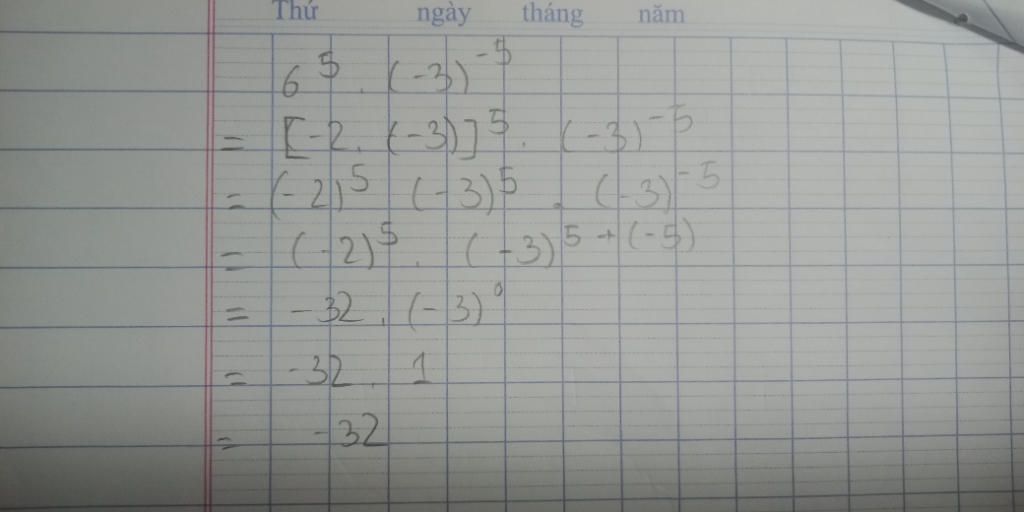 Thứ ngày tháng năm
6⁵ . (-3)⁻⁵
= [-2 . (-3)]⁵ . (-3)⁻⁵
= (-2)⁵ (-3)⁵ . (-3)⁻⁵
= (-2)⁵ . (-3)⁵⁺⁽⁻⁵⁾
= -32 . (-3)⁰
= -32 . 1
= -32